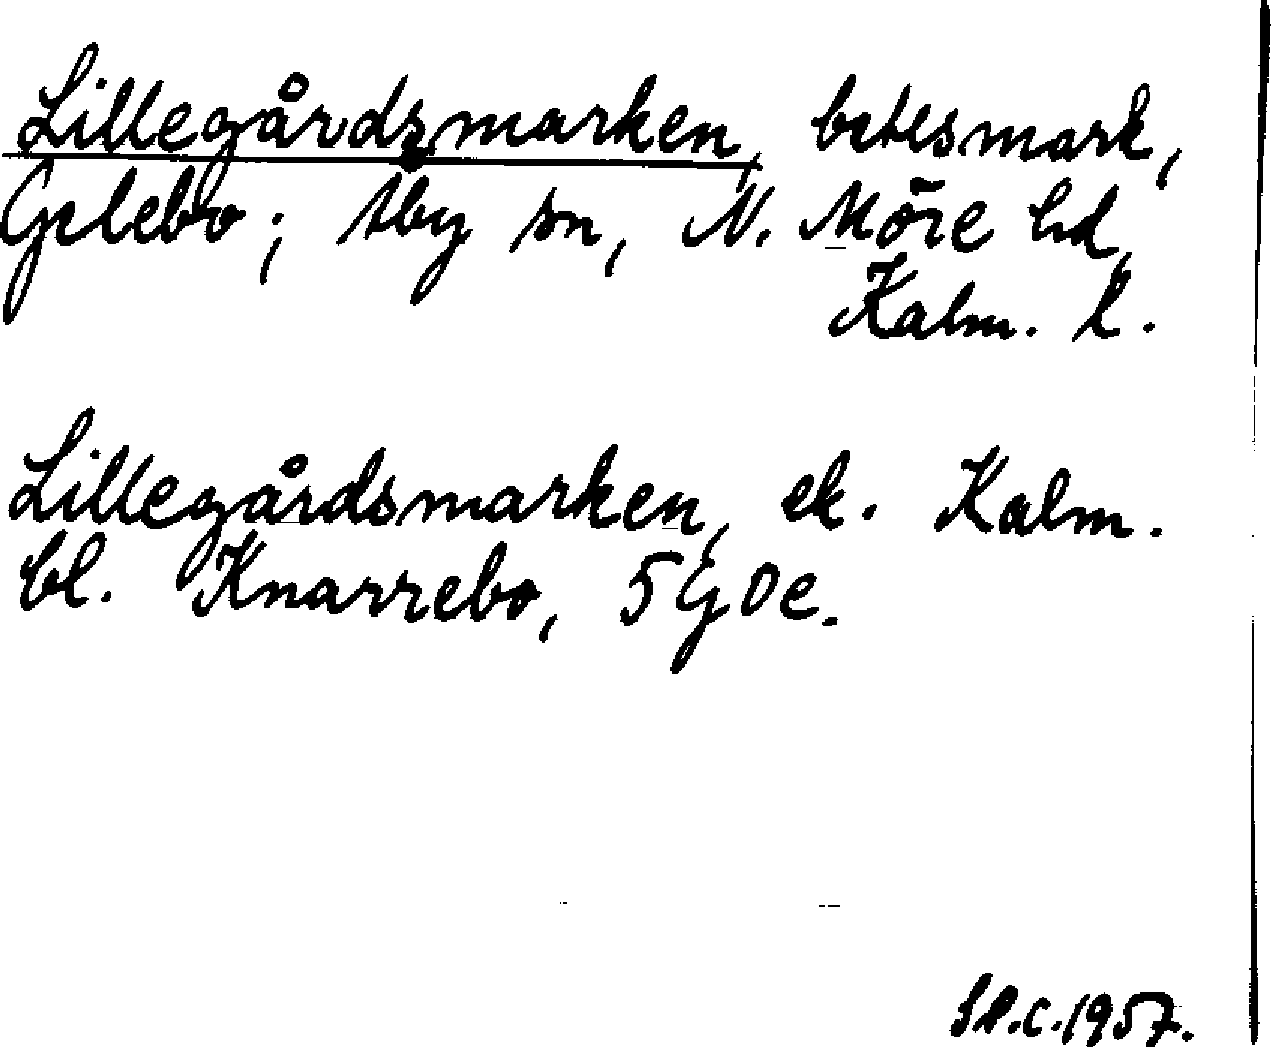 Lillegårdsmarken, betesmark,
Gelebo; Åby sn, N. Möre hd,
Kalm. l.
Lillegårdsmarken, ek. Kalm.
bl. Knarrebo, 5G0e.
1957.